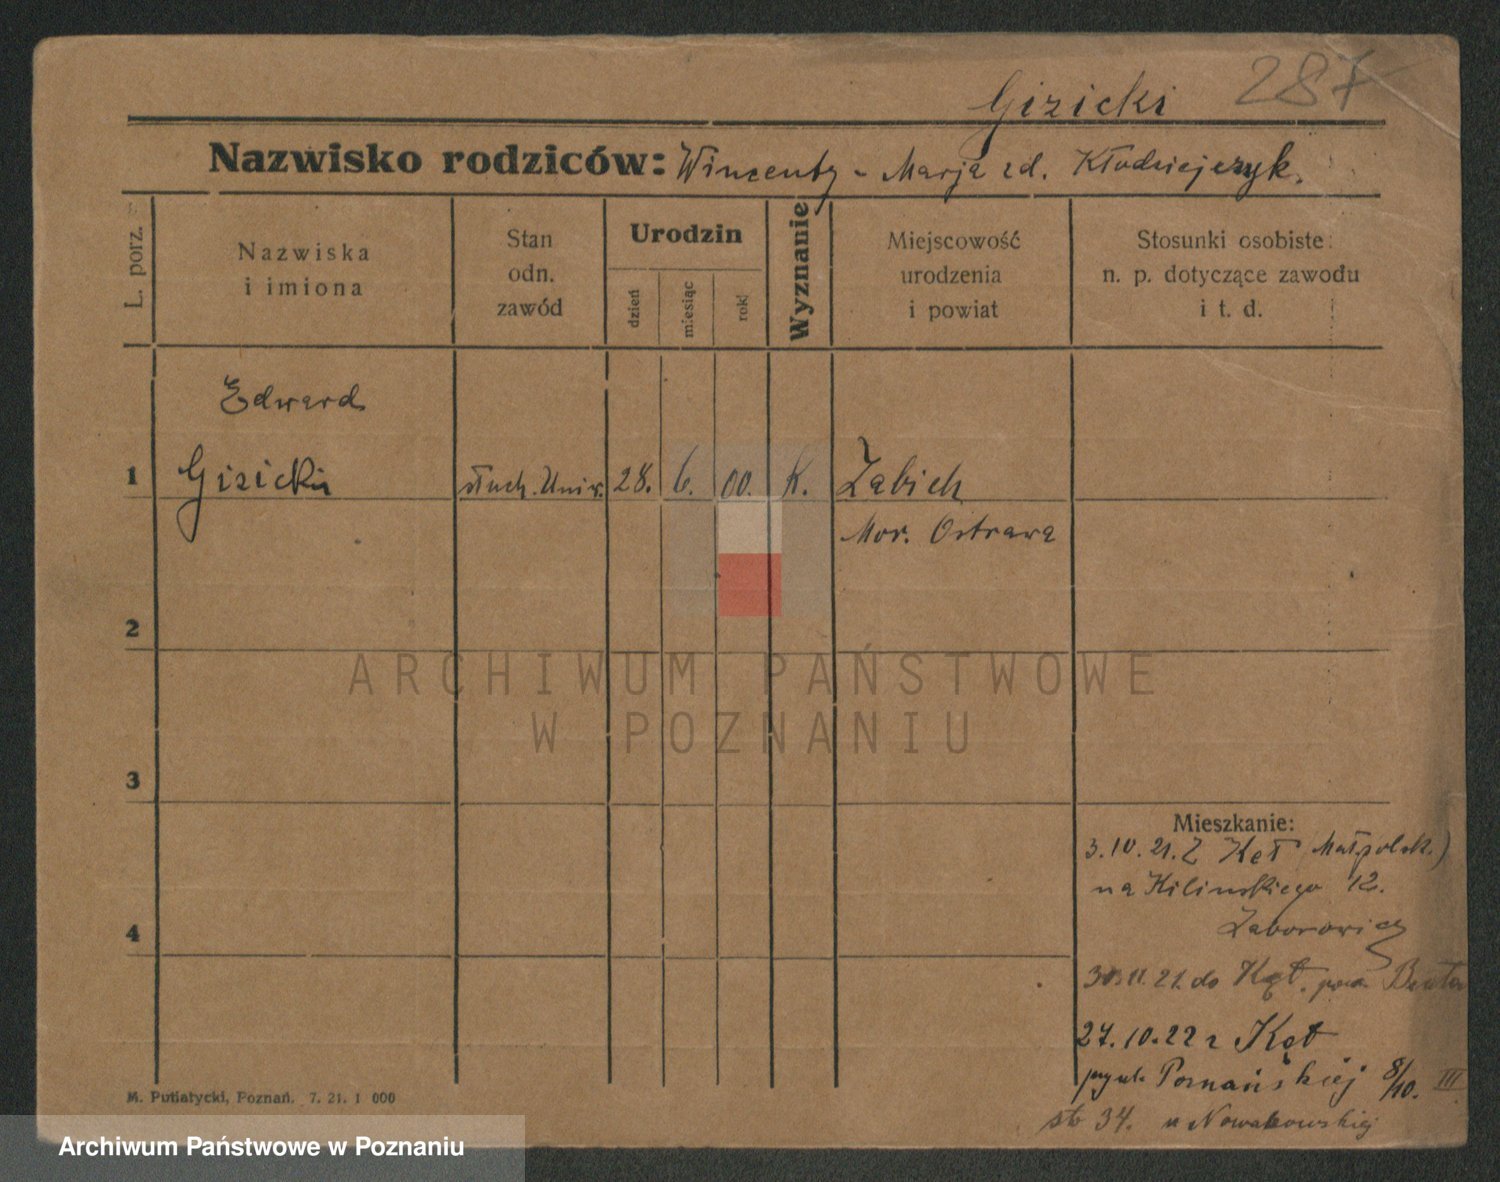 287
Gizicki
Nazwisko rodziców: Wincenty - Marja zd. Kłodziejczyk.
L. porz.
Nazwiska
i imiona
Stan
odn.
zawód
Urodzin
dzień
miesiąc
rok
Wyznanie
Miejscowość
urodzenia
i powiat
Stosunki osobiste:
n. p. dotyczące zawodu
i t. d.
Edward
1 Gizicki słuch. Uniw. 28. 6. 00. k. Zabich
Mor. Ostrawa
2
3
4
Mieszkanie:
3.10.21. Z Kęt Małpolsk.)
na Kilinskiego 12.
Zaborowicz
30.11.21 do Kęt. pow. Biała
27.10.22 z Kęt
Poznańskiej 8/10. III
34. u Nowakowskiej
M. Putiatycki, Poznań. 7. 21. 1 000
ARCHIWUM PAŃSTWOWE
W POZNANIU
Archiwum Państwowe w Poznaniu